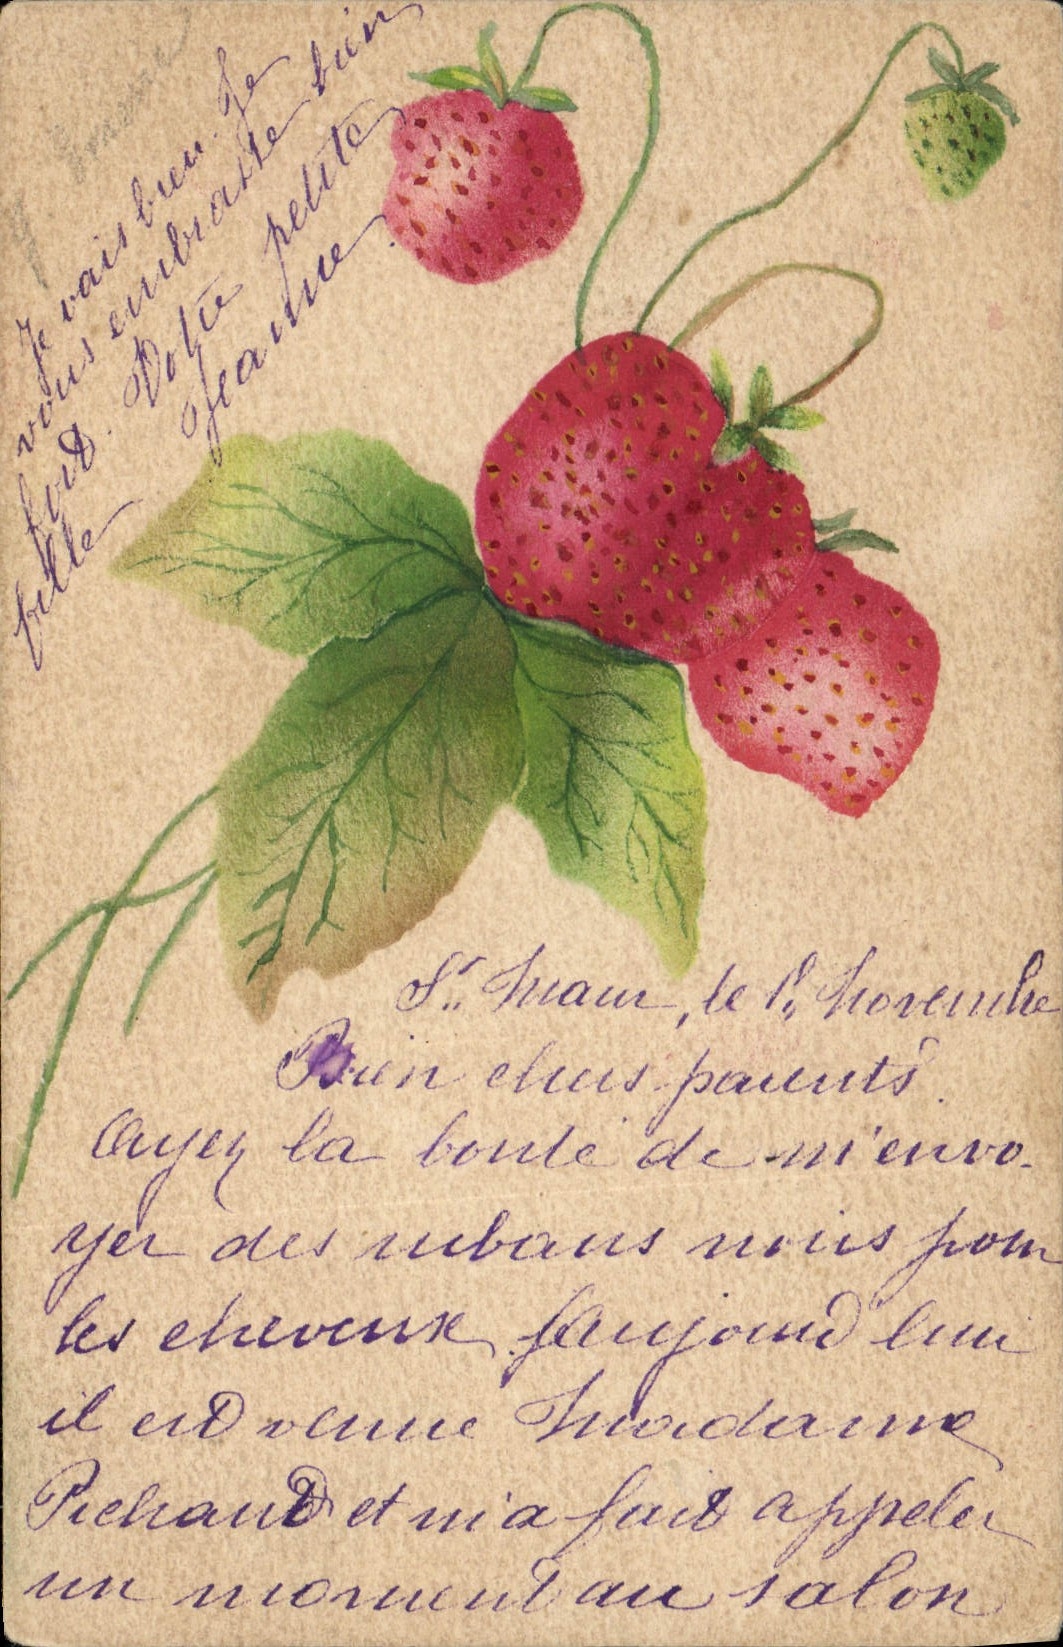 St. Maur, le 1er, Novembre
Bien chers parents.
Ayez la bonté de m'envo-
yer des rubans noirs pour
les cheveux. Aujourd'hui
il est venue Madame
Richaud et m'a fait appeler
un moment au salon
Je vais bien. Je
vous embrasse bien
fort. Votre petite
fille Jeanne.